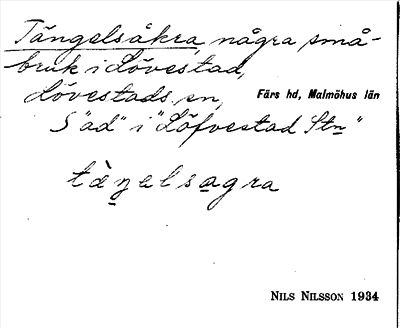 Tängelsåkra, några små-
bruk i Lövestad,
Lövestads sn, Färs hd, Malmöhus län
S "ad" i "Löfvestad Stn"
tàŋelsagra
NILS NILSSON 1934